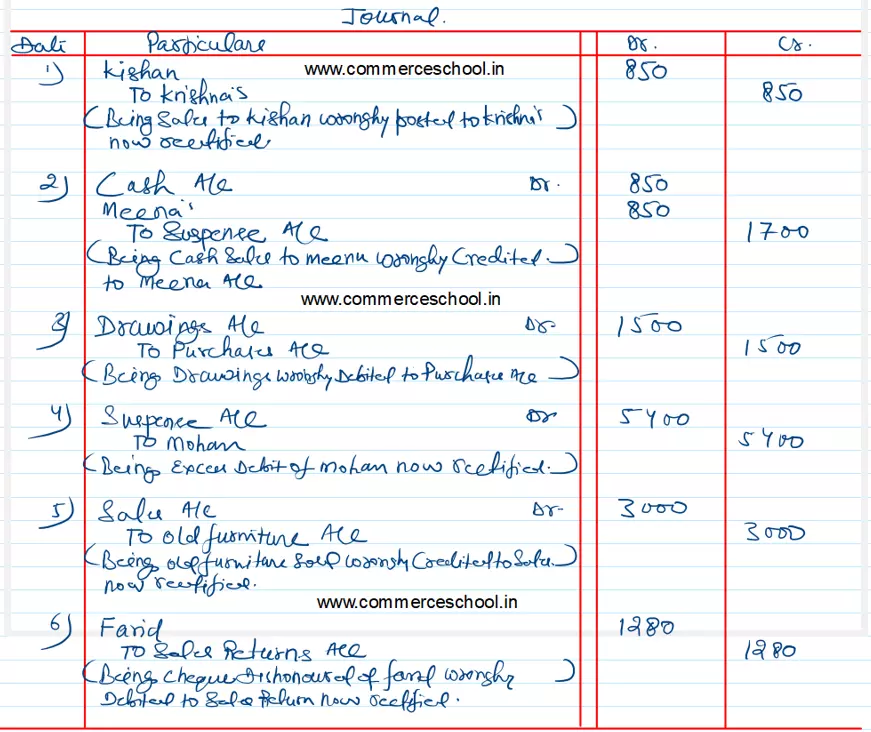 Journal.
Date Particulars Dr. Cr.
1) Kishan www.commerceschool.in 850
To Krishna's 850
(Being Sales to Kishan wrongly posted to Krishna's)
now rectified.
2) Cash A/c Dr. 850
Meena's 850
To Suspense A/c 1700
(Being Cash Sales to meenu wrongly Credited.)
to Meena A/c
www.commerceschool.in
3) Drawings A/c Dr- 1500
To Purchases A/c 1500
(Being Drawings wrongly Debited to Purchase A/c)
4) Suspense A/c Dr 5400
To Mohan 5400
(Being Excess Debit of Mohan now rectified.)
5) Sales A/c Dr- 3000
To old furniture A/c 3000
(Being old furniture Sold wrongly Credited to Sales.)
now rectified.
www.commerceschool.in
6) Farid 1280
To Sales Returns A/c 1280
(Being Cheque Dishonoured of farid wrongly)
Debited to Sales Return now rectified.